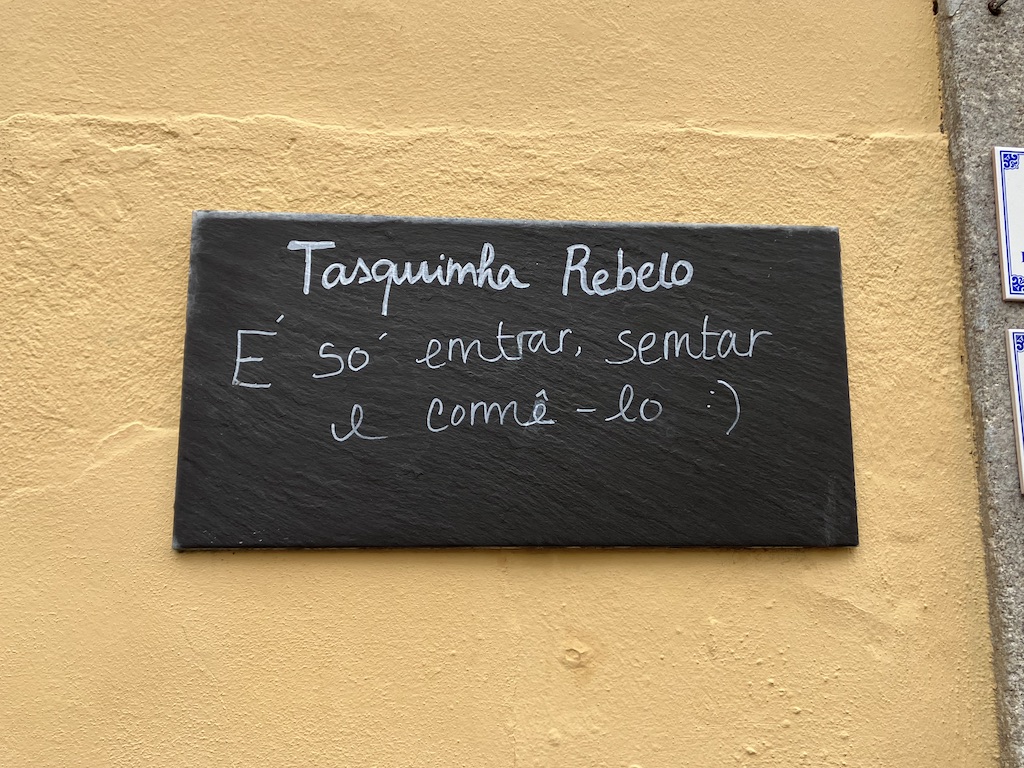 Tasquinha Rebelo
É só entrar, sentar
e comê-lo :)